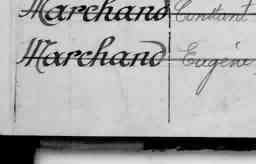 Marchand Constant
Marchand Eugène